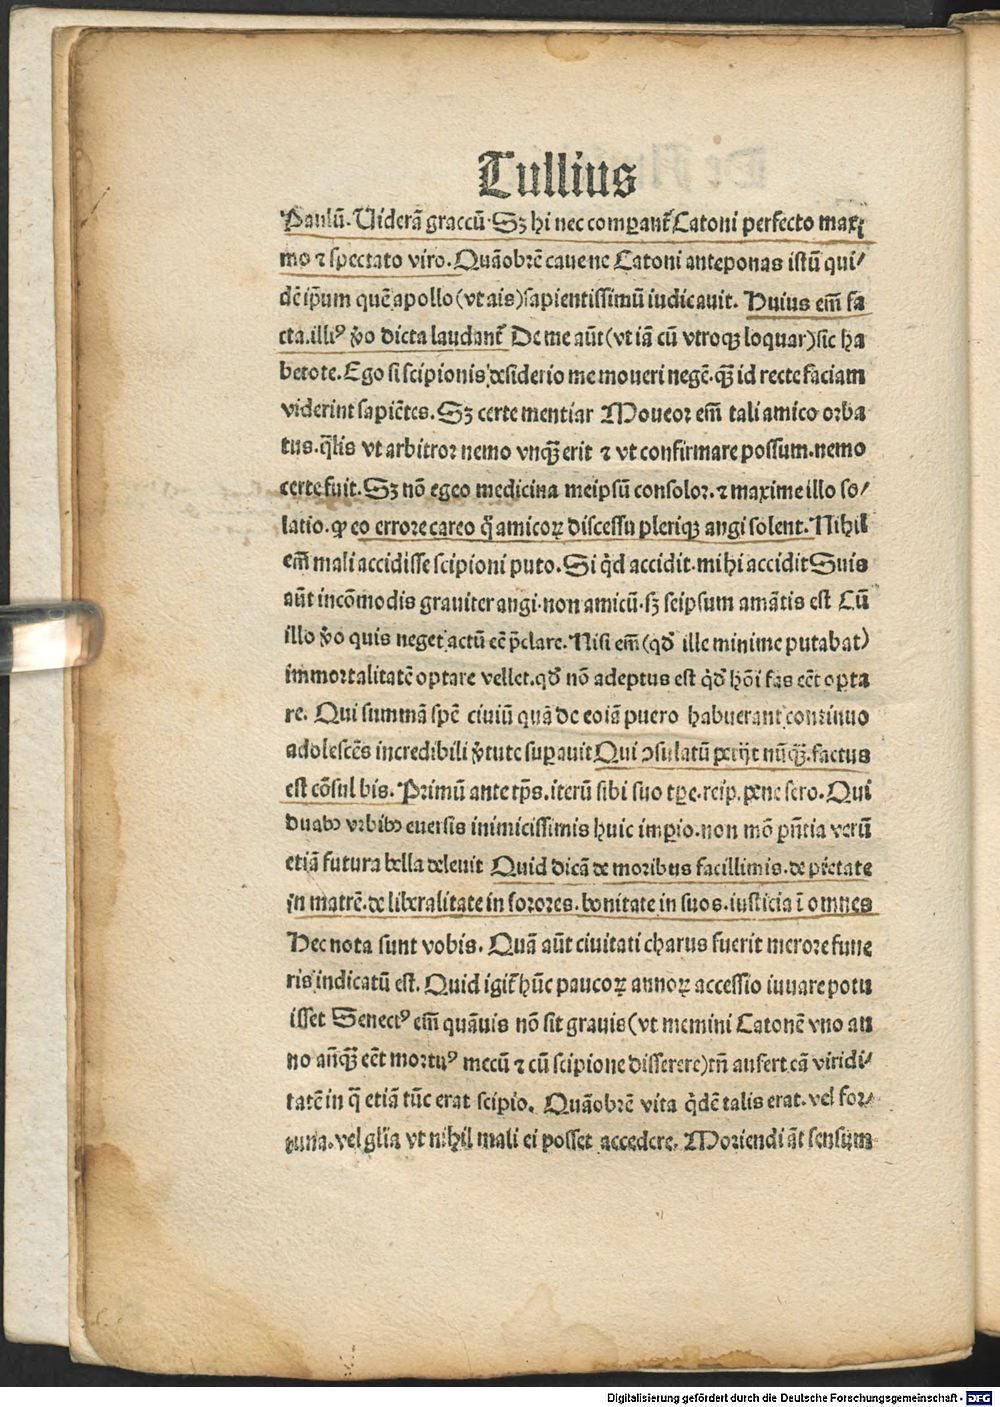 Tullius
Paulū. Uiderā graccū. Sꝫ hi nec comꝑant᷑ Catoni perfecto maxi
mo ⁊ spectato viro. Quāobrē cauene Catoni anteponas istū qui/
dē ip̄um quē apollo (vt ais) sapientissimū iudicauit. Huius em̄ fa
cta. illiꝰ v̓o dicta laudant᷑ De me aūt (vt iā cū vtroqꝫ loquar) sic ha
betote. Ego si scipionis desiderio me moueri negē. qꝫ̄ id recte faciam
viderint sapiētes. Sꝫ certe mentiar Moueor em̄ tali amico orba
tus. q̄lis vt arbitror nemo vnqꝫ̄ erit ⁊ vt confirmare possum. nemo
certe fuit. Sꝫ nō egeo medicina meipsū consolor. ⁊ maxime illo so/
latio. ꝙ eo errore careo q̄ amicoꝝ discessu pleriqꝫ angi solent. Nihil
em̄ mali accidisse scipioni puto. Si qd̓ accidit. mihi accidit Suis
aūt incōmodis grauiter angi. non amicū. sꝫ seipsum amātis est Cū
illo v̓o quis neget actū eē p̄clare. Nisi em̄ (qd̓ ille minime putabat)
immortalitatē optare vellet. qd̓ nō adeptus est qd̓ hōi fas eēt opta
re. Qui summā spē ciuiū quā de eo iā puero habuerant continuo
adolescēs incredibili v̓tute suꝑauit Qui ↄsulatū petijt nūqꝫ̄. factus
est cōsul bis. Primū ante tp̄s. iterū sibi suo tꝑe. reip. pene sero. Qui
duabꝰ vrbibꝰ euersis inimicissimis huic imꝑio. non mō pn̄tia verū
etiā futura bella deleuit Quid dicā de moribus facillimis. de pietate
in matrē. de liberalitate in sorores. bonitate in suos. iusticia ī omnes
Hec nota sunt vobis. Quā aūt ciuitati charus fuerit merore fune
ris indicatū est. Quid igit᷑ hūc paucoꝝ annoꝝ accessio iuuare potu
isset Senectꝰ em̄ quāuis nō sit grauis (vt memini Catonē vno an
no an̄qꝫ̄ eēt mortuꝰ mecū ⁊ cū scipione disserere) tn̄ aufert eā viridi/
tatē in q̄ etiā tūc erat scipio. Quāobrē vita qd̓ē talis erat. vel for/
tuna. vel gl̄ia vt nihil mali ei posset accedere. Moriendi āt sensum
Digitalisierung gefördert durch die Deutsche Forschungsgemeinschaft - DFG